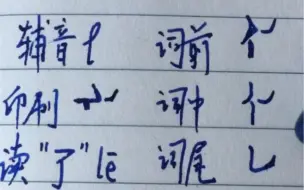 辅音 l 词前
印刷 词中
读"了" lē 词尾